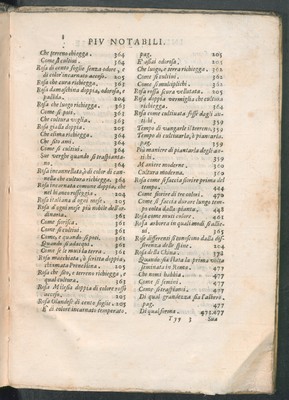 PIV NOTABILI.
Che terreno chiegga. 364
Come si coltini. 364
Rosa di cento foglie senza odore, e
di color incarnato acceso. 205
Rosa che cura richiegga. 361
Rosa damaschina doppia, odorosa, e
pallida. 204
Rosa che luogo richiegga. 361
Come si poti. 361
Che cultura voglia. 361
Rosa gialla doppia. 205
Che clima richiegga. 364
Che sito ami. 364
Come si cultini. 364
Sue verghe quando si traspianta-
no. 364
Rosa incannellata, ò di color di can-
nella che cultura chiegga. 364
Rosa incarnata comune doppia, che
nel bianco rosseggia. 204
Rosa italiana d'ogni mese. 205
Rosa d'ogni mese più nobile dell'or-
dinaria. 361
Come fiorisca. 361
Come si cultini. 361
Come, e quando si poti. 361
Quando s'adacqui. 361
Come se le muti la terra. 361
Rosa muschiata, à sertina doppia,
chiamata Prenestina. 205
Rosa che sito, e terreno richiegga, e
qual cultura. 363
Rosa Milesia doppia di colore rosso
acceso. 205
Rosa Olandese di cento foglie. 205
E' di colore incarnato temperato.
pag. 205
E' assai odorosa. 205
Che luogo, e terra richiegga. 362
Come si cultini. 362
Come si multiplichi. 362
Rosa rossa scura vellutata. 205
Rosa doppia vermiglia che cultura
richiegga. 364
Rosa come cultinata fosse dagli an-
tichi. 359
Tempo di vangarle il terreno. 359
Tempo di cultiuarla, ò piantarla.
pag. 359
Più maniere di piantarla dagli an-
tichi. 359
Maniere moderne. 360
Cultura moderna. 360
Rosa come si faccia fiorire prima del
tempo. 444
Come fiorire di tre colori. 470
Come si faccia durare lungo tem-
po colta dalla pianta. 448
Rosa come muti colore. 461
Rosa arborea in quali modi si alle-
ui. 365
Rose differenti si conoscono dalla dif-
ferenza delle spine. 204
Rosa della China. 378
Quando sia stata la prima volta
seminata in Roma. 477
Che nomi habbia. 477
Come si semini. 477
Come si traspianti. 477
Di qual grandezza sia l'albero.
pag. 477
Di qual forma. 471.477
Tyy 3 Sua